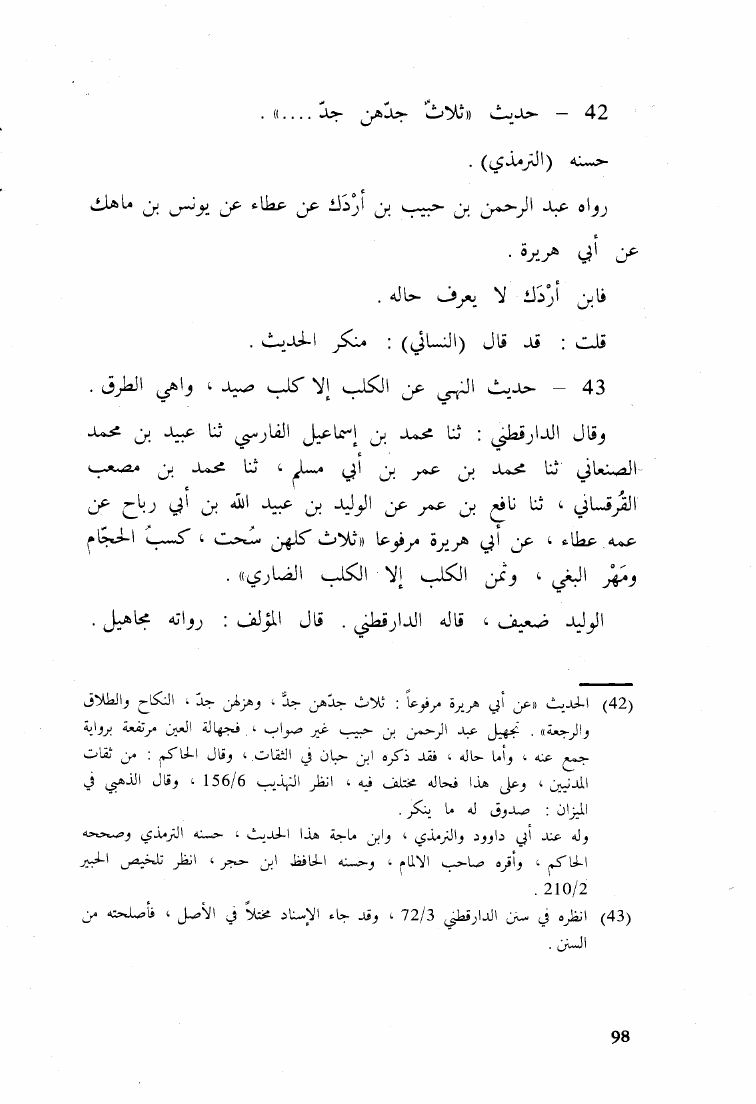 42 – حديث «ثلاثٌ جدّهن جدّ ....» .
حسنه (الترمذي) .
رواه عبد الرحمن بن حبيب بن أرْدَك عن عطاء عن يونس بن ماهك
عن أبي هريرة .
فابن أرْدَك لا يعرف حاله .
قلت : قد قال (النسائي) : منكر الحديث .
43 – حديث النهي عن الكلب إلا كلب صيد ، واهي الطرق .
وقال الدارقطني : ثنا محمد بن إسماعيل الفارسي ثنا عبيد بن محمد
الصنعاني ثنا محمد بن عمر بن أبي مسلم ، ثنا محمد بن مصعب
القُرقساني ، ثنا نافع بن عمر عن الوليد بن عبيد الله بن أبي رباح عن
عمه عطاء ، عن أبي هريرة مرفوعا «ثلاث كلهن سُحت ، كسبُ الحجّام
ومَهْر البغي ، وثمن الكلب إلا الكلب الضاري» .
الوليد ضعيف ، قاله الدارقطني . قال المؤلف : رواته مجاهيل .
(42) الحديث «عن أبي هريرة مرفوعاً : ثلاث جدّهن جدٌّ ، وهزلهن جدّ ، النكاح والطلاق
والرجعة» . تجهيل عبد الرحمن بن حبيب غير صواب ، فجهالة العين مرتفعة برواية
جمع عنه ، وأما حاله ، فقد ذكره ابن حبان في الثقات ، وقال الحاكم : من ثقات
المدنيين ، وعلى هذا فحاله مختلف فيه ، انظر التهذيب 156/6 ، وقال الذهبي في
الميزان : صدوق له ما ينكر .
وله عند أبي داوود والترمذي ، وابن ماجة هذا الحديث ، حسنه الترمذي وصححه
الحاكم ، وأقره صاحب الالمام ، وحسنه الحافظ ابن حجر ، انظر تلخيص الحبير
210/2 .
(43) انظره في سنن الدارقطني 72/3 ، وقد جاء الإسناد مختلاً في الأصل ، فأصلحته من
السنن .
98